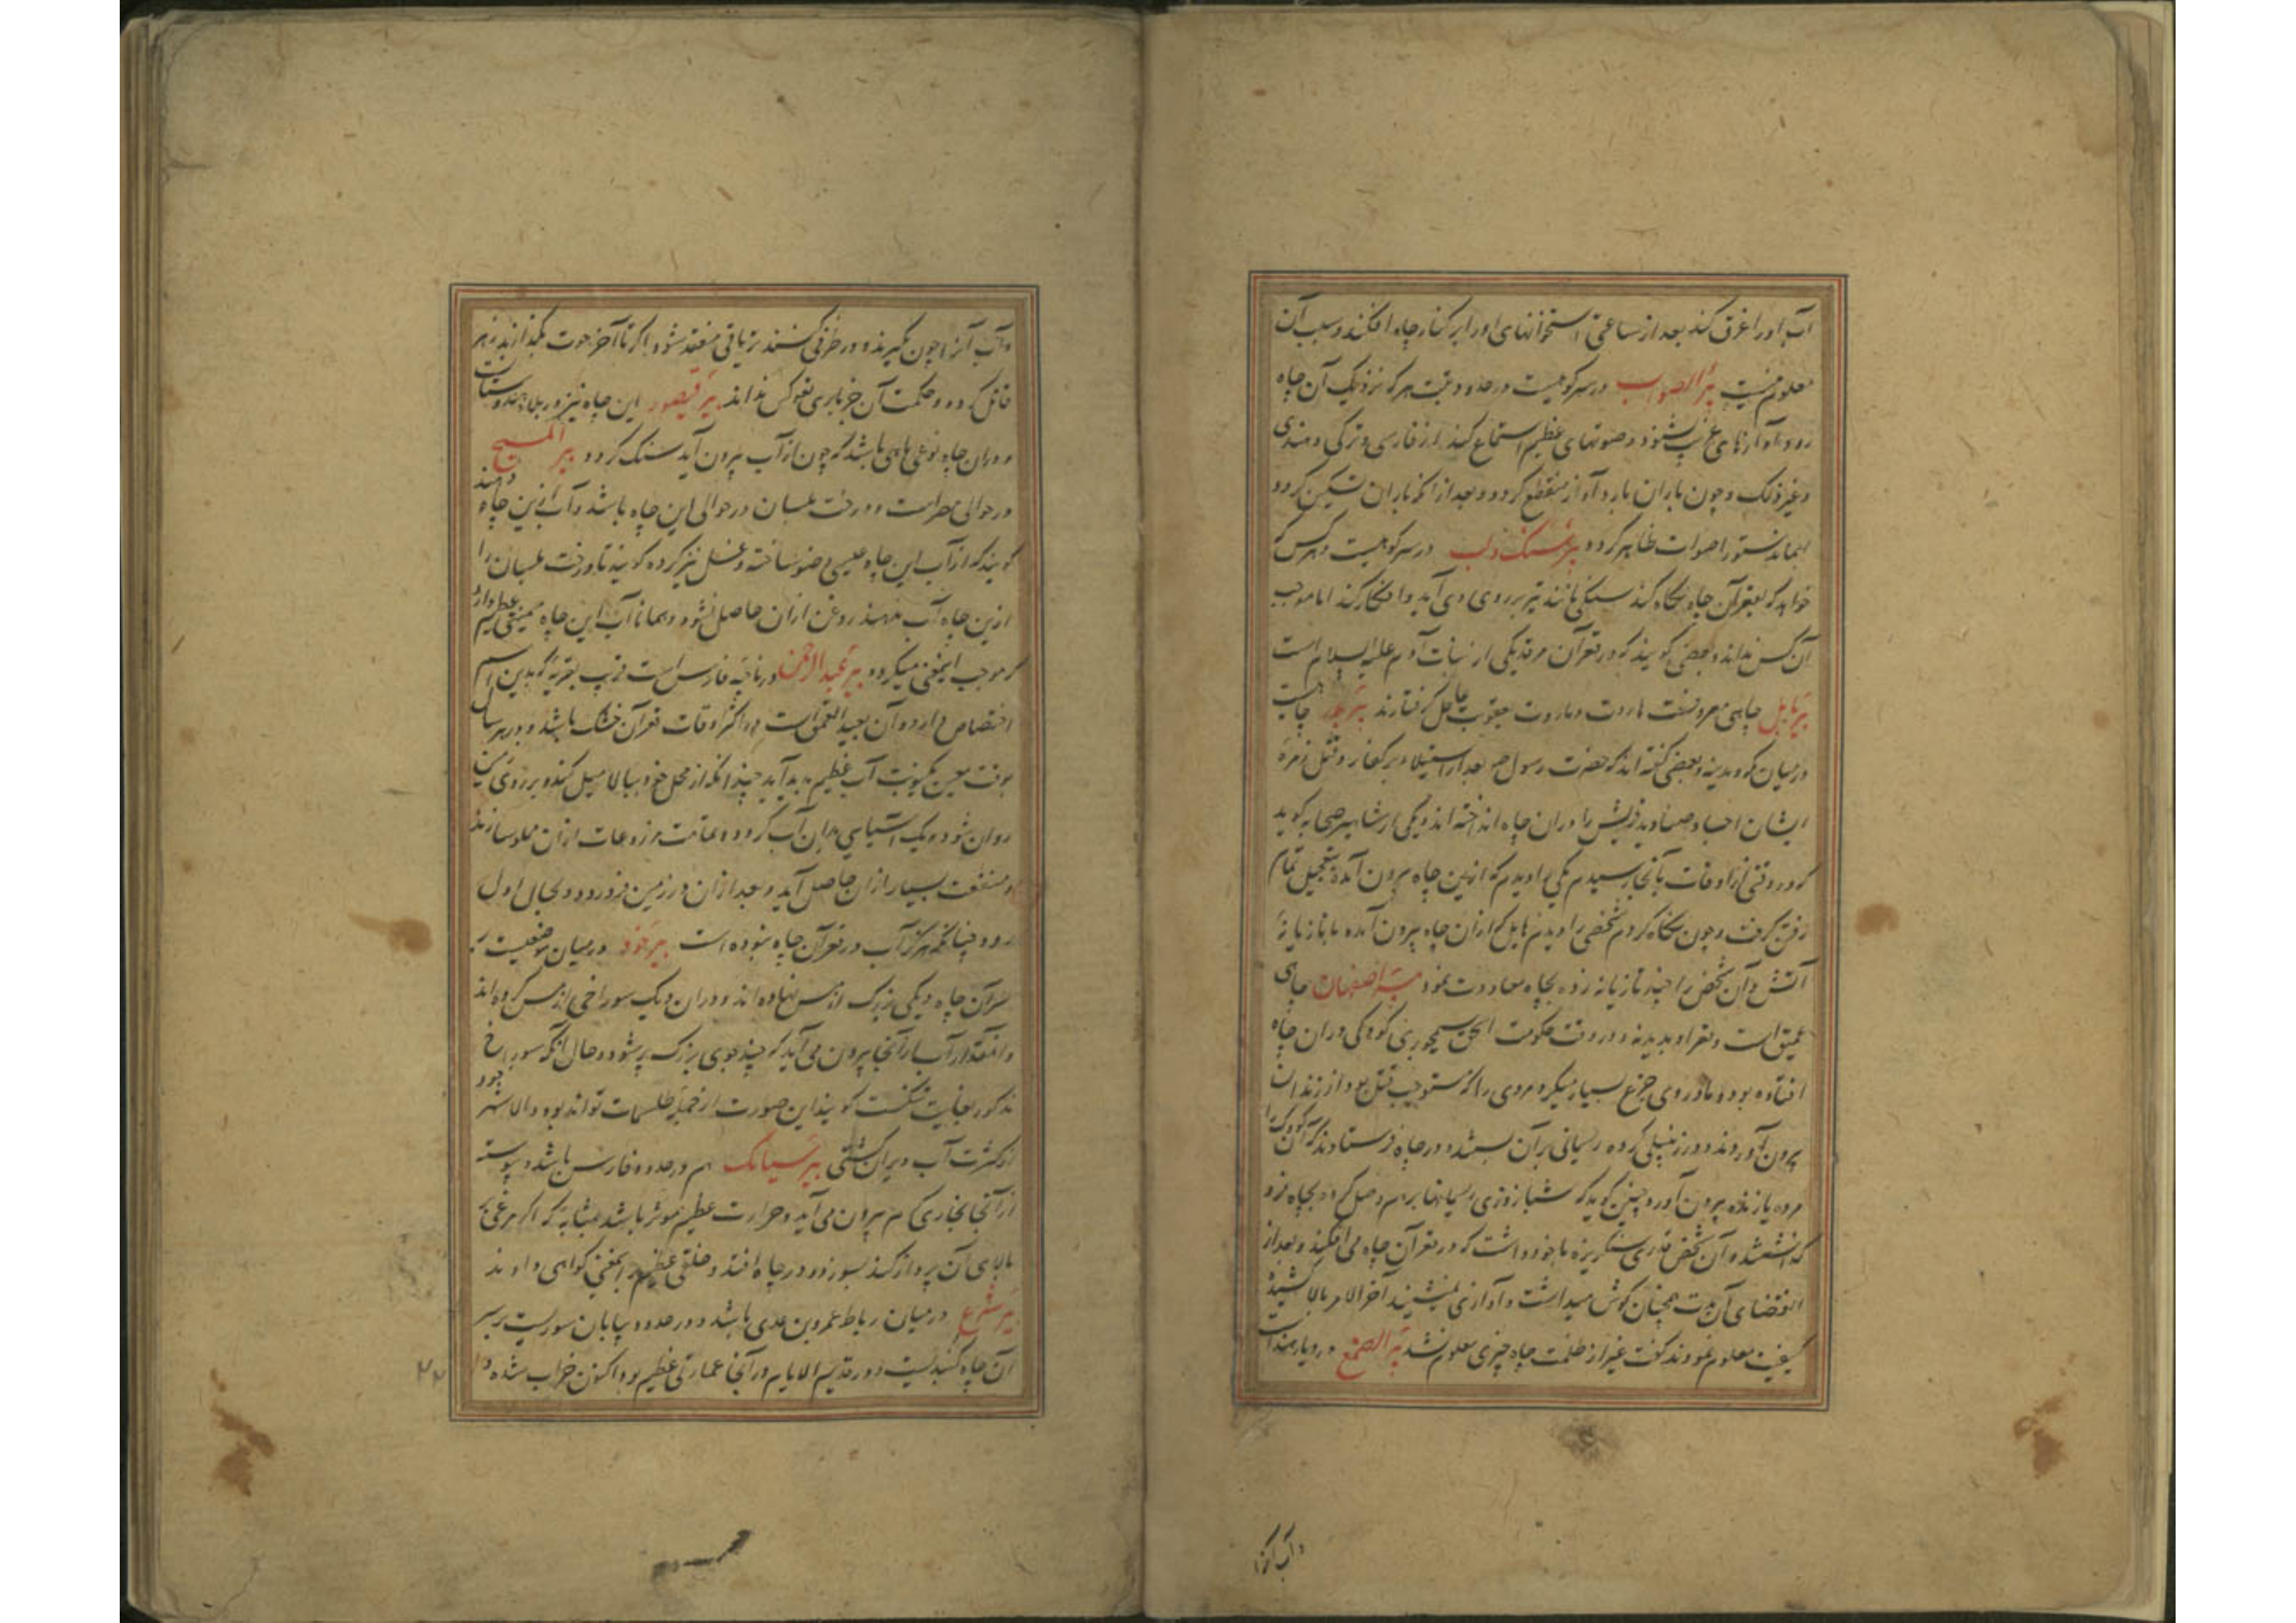 آب او را غرق کند بعد از ساعتی استخوانهای او را بر کنار چاه افکند و سبب آن
معلوم نیست بئر الصواب در سر کوهیست در حدود تبت هر که نزدیک آن چاه
رود آوازهای غریب شنود و صوتهای عظیم استماع کند از فارسی و ترکی و هندی
و غیر ذلک و چون باران بارد آواز منقطع کردد و بعد از آنکه باران تسکین کردد
اصوات ظاهر کردد در سر کوهیست و هر کس که
خواهد که بقعر آن چاه نکاه کند سنکی مانند تیر بر روی وی آید و افکار کند اما موجب
آن کس نداند و بعضی کویند که در قعر آن مرقد یکی از بنات آدم علیه السلام است
بیر بابل چاهی معروفست هاروت و ماروت بعقوبت کرفتارند بیر بدر چاهیست
در میان مکه و مدینه و بعضی کفته اند که حضرت رسول صم بعد از استیلا بر کفار و قتل زمرهٔ
ایشان اجساد صنادید قریش را در آن چاه انداخته اند و یکی از مشاهیر صحابه کوید
که در وقتی از اوقات بآنجا رسیدم یکی را دیدم که ازین چاه بیرون آمده بتعجیل تمام
رفتن کرفت و چون نکاه کردم شخصی را دیدم هایل که از آن چاه بیرون آمده با تازیانهٔ
آتش و آن شخص را چند تازیانه زده بچاه معاودت نمود بیر اصفهان چاهی
عمیق است و قعر او پدید نه و در وقت حکومت سیمجوری کودکی در آن چاه
افتاده بود و مادر وی جزع بسیار میکرد مردی را که مستوجب قتل بود از زندان
بیرون آوردند و در زنبیلی کرده ریسمانی بر آن بستند و در چاه فرستادند که آن کودک را
مرده یا زنده بیرون آورد چنین کوید که شبانروزی ریسمانها بر هم وصل کرده بچاه فرو
کذاشتند و آن شخص قدری سنکریزه با خود داشت که در قعر آن چاه می افکند و بعد از
انقضای آن مدت همچنان کوش میداشت و آوازی نمیشنید آخر الامر بالا کشیده
کیفیت معلوم نمودند کفت غیر از ظلمت چاه چیزی معلوم نشد در دیار هند است
و آب آنرا
و آب آنرا چون بکیرند و در ظرفی کنند تریاقی منعقد شود و اکر تا آخر حوت بکذارند زهر
قاتل کردد و حکمت آن جز باری تعالی کس نداند بیر قیصور این چاه نیز در بلاد هندوستانست
و در آن چاه نوعی ماهی باشد که چون از آب بیرون آید سنک کردد بیر المسیح
در حوالی مصر است و درخت بلسان در حوالی این چاه باشد و آب ازین چاه دهند
کویند که از آب این چاه عیسی وضو ساخته و غسل نیز کرده کویند تا درخت بلسان را
ازین چاه آب ندهند روغن از آن حاصل نشود و همانا آب این چاه عظیم دارد
که موجب این معنی میکردد بیر عبد الرحمن در ناحیه فارس است قریب بقریه که بدین اسم
اختصاص دارد و آن بعید العمق است و در اکثر اوقات قعر آن خشک باشد و در هر سال
بوقت معین یکنوبت آب عظیم پدید آید چندانکه از محل خود ببالا میل کند و بر روی زمین
روان شود و یک آسیایی بدان آب کردد و عامت مزروعات از آن مملو سازند
و منفعت بسیار از آن حاصل آید و بعد از آن در زمین فرو رود و بحال اول
رود چنانکه هرکز آب در قعر آن چاه نبوده است در میان موضعیست که
سر آن چاه دیکی بزرک از مس نهاده اند و در آن دیک سوراخی از مس کرده اند
و آنمقدار آب از آنجا بیرون می آید که چند جوی بزرک پر شود و حال آنکه سوراخ
مذکور بغایت تنکست کویند این صورت از جمله طلسمات تواند بود و الا شهر جور
از کثرت آب ویران کشتی بیر سیامک هم در حدود فارس باشد و پیوسته
از آنجا بخاری کرم بیرون می آید و حرارت عظیم موثر باشد بمثابه که اکر مرغی به
بالای آن پرواز کند بسوزد و در چاه افتد و خلقی عظیم بر این معنی کواهی دادند
در میان رباط عمرو بن عدی باشد و در حدود بیابان سوریست بر سر
آن چاه کنبدیست و در قدیم الایام در آنجا عمارتی عظیم بود اکنون خراب شده
۲۲